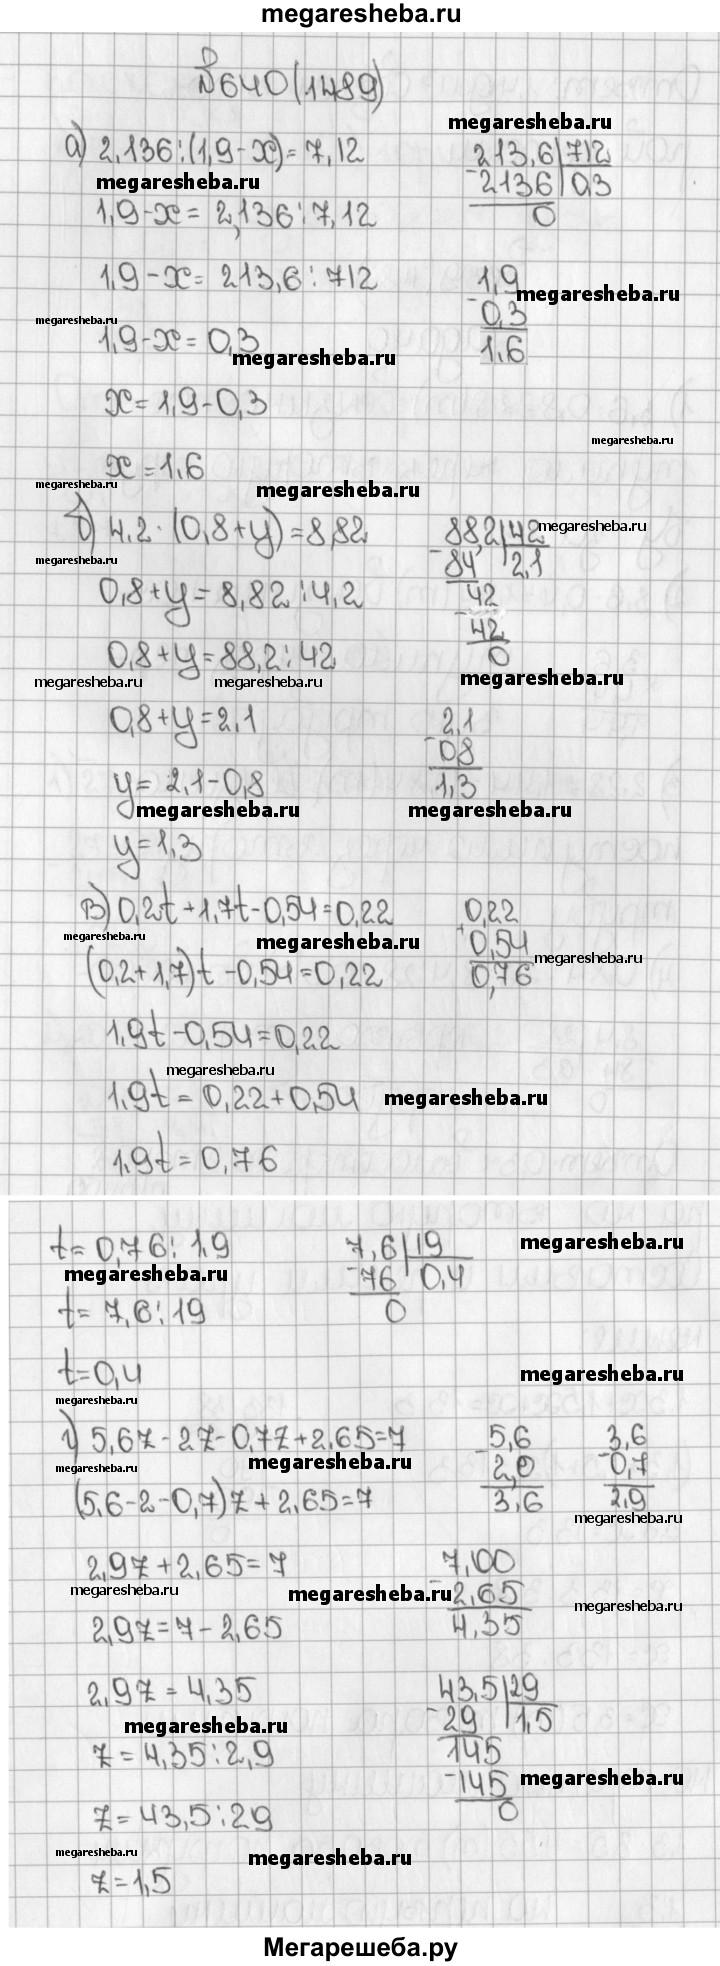 megaresheba.ru
№640(1489)
megaresheba.ru
а) 2,136:(1,9-x)=7,12
213,6|712
megaresheba.ru
-2136|0,3
0
1,9-x= 2,136:7,12
1,9-x= 213,6:712
1,9
megaresheba.ru
-0,3
1,6
megaresheba.ru
1,9-x=0,3
megaresheba.ru
x=1,9-0,3
megaresheba.ru
x=1,6
megaresheba.ru
megaresheba.ru
б) 4,2·(0,8+y)=8,82
88,2|42
megaresheba.ru
-84|2,1
42
-42
0
megaresheba.ru
0,8+y=8,82:4,2
0,8+y=88,2:42
megaresheba.ru
megaresheba.ru
megaresheba.ru
0,8+y=2,1
2,1
-0,8
1,3
y=2,1-0,8
megaresheba.ru
megaresheba.ru
y=1,3
в) 0,2t+1,7t-0,54=0,22
0,22
+0,54
0,76
megaresheba.ru
megaresheba.ru
megaresheba.ru
(0,2+1,7)t-0,54=0,22
1,9t-0,54=0,22
megaresheba.ru
1,9t=0,22+0,54
megaresheba.ru
1,9t=0,76
t=0,76:1,9
7,6|19
megaresheba.ru
-76|0,4
0
megaresheba.ru
t=7,6:19
t=0,4
megaresheba.ru
megaresheba.ru
г) 5,6z-2z-0,7z+2,65=7
5,6
-2,0
3,6
3,6
-0,7
2,9
megaresheba.ru
(5,6-2-0,7)z+2,65=7
megaresheba.ru
2,9z+2,65=7
7,00
-2,65
4,35
megaresheba.ru
megaresheba.ru
megaresheba.ru
2,9z=7-2,65
2,9z=4,35
43,5|29
-29|1,5
145
-145
0
megaresheba.ru
z=4,35:2,9
megaresheba.ru
z=43,5:29
megaresheba.ru
megaresheba.ru
z=1,5
Мегарешеба.ру